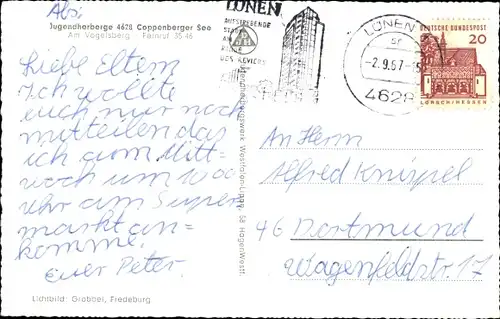 Abs.
Jugendherberge 4628 Cappenberger See
Am Vogelsberg Fernruf 35 46
Liebe Eltern
Ich wollte
euch nur noch
mitteilen das
ich am Mitt-
woch um 10 00
Uhr am Super
markt an-
komme.
Euer Peter.
Lichtbild: Grabbel, Fredeburg
LÜNEN
AUFSTREBENDE
STADT
AM
RANDE
DES REVIERS
LÜNEN
-2.9.67-15
4628
DEUTSCHE BUNDESPOST
20
LORSCH/HESSEN
An Herrn
Alfred Knispel
46 Dortmund
Wagenfeldstr. 17